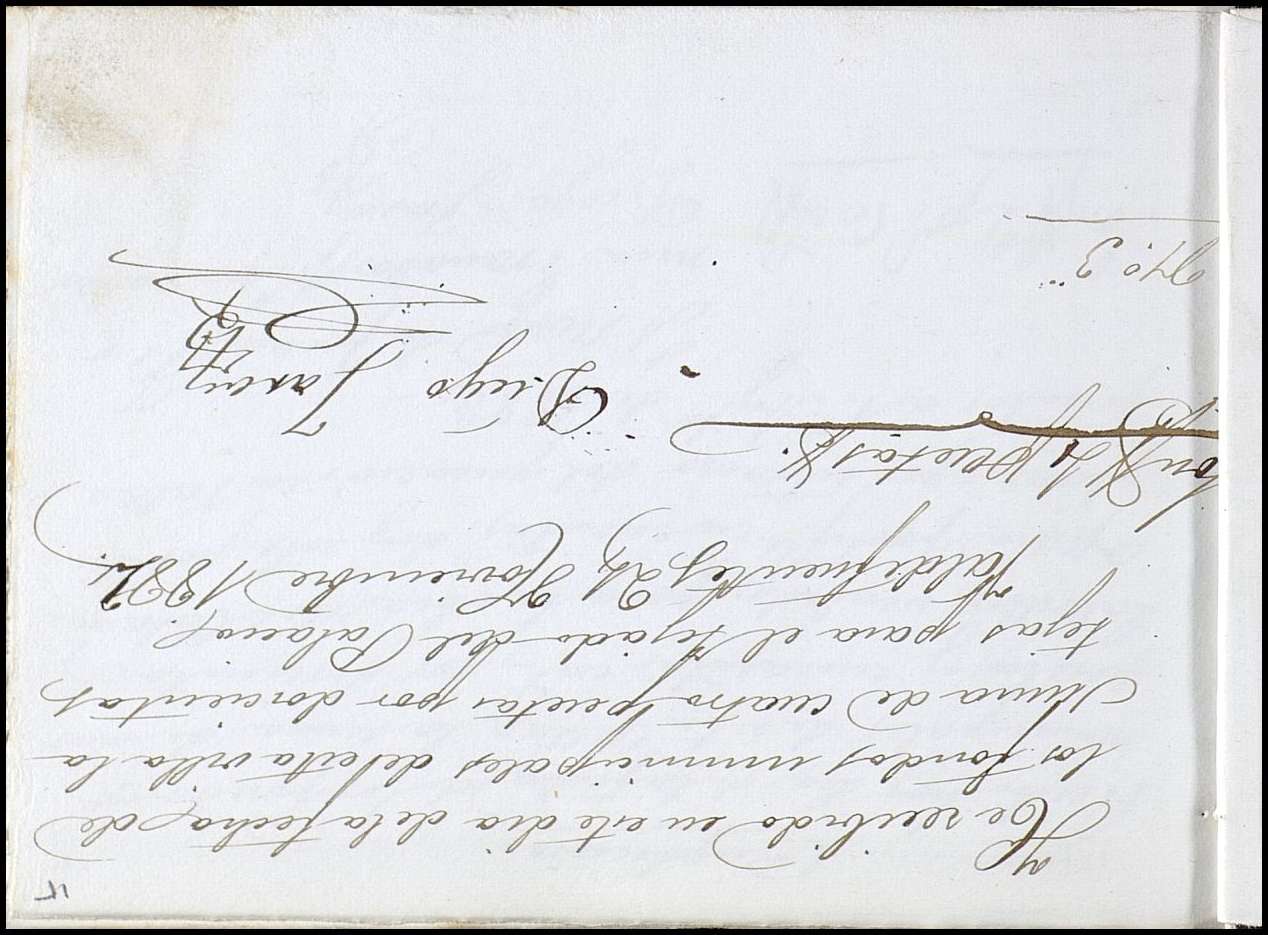 He recibido en este dia de la fecha, de
los fondos municipales de esta villa la
suma de cuatro pesetas por doscientas
tejas para el tejado del Palacio.
Valdefuentes 21 Noviembre 1882.
Son 4 pesetas
Diego
Nº 3